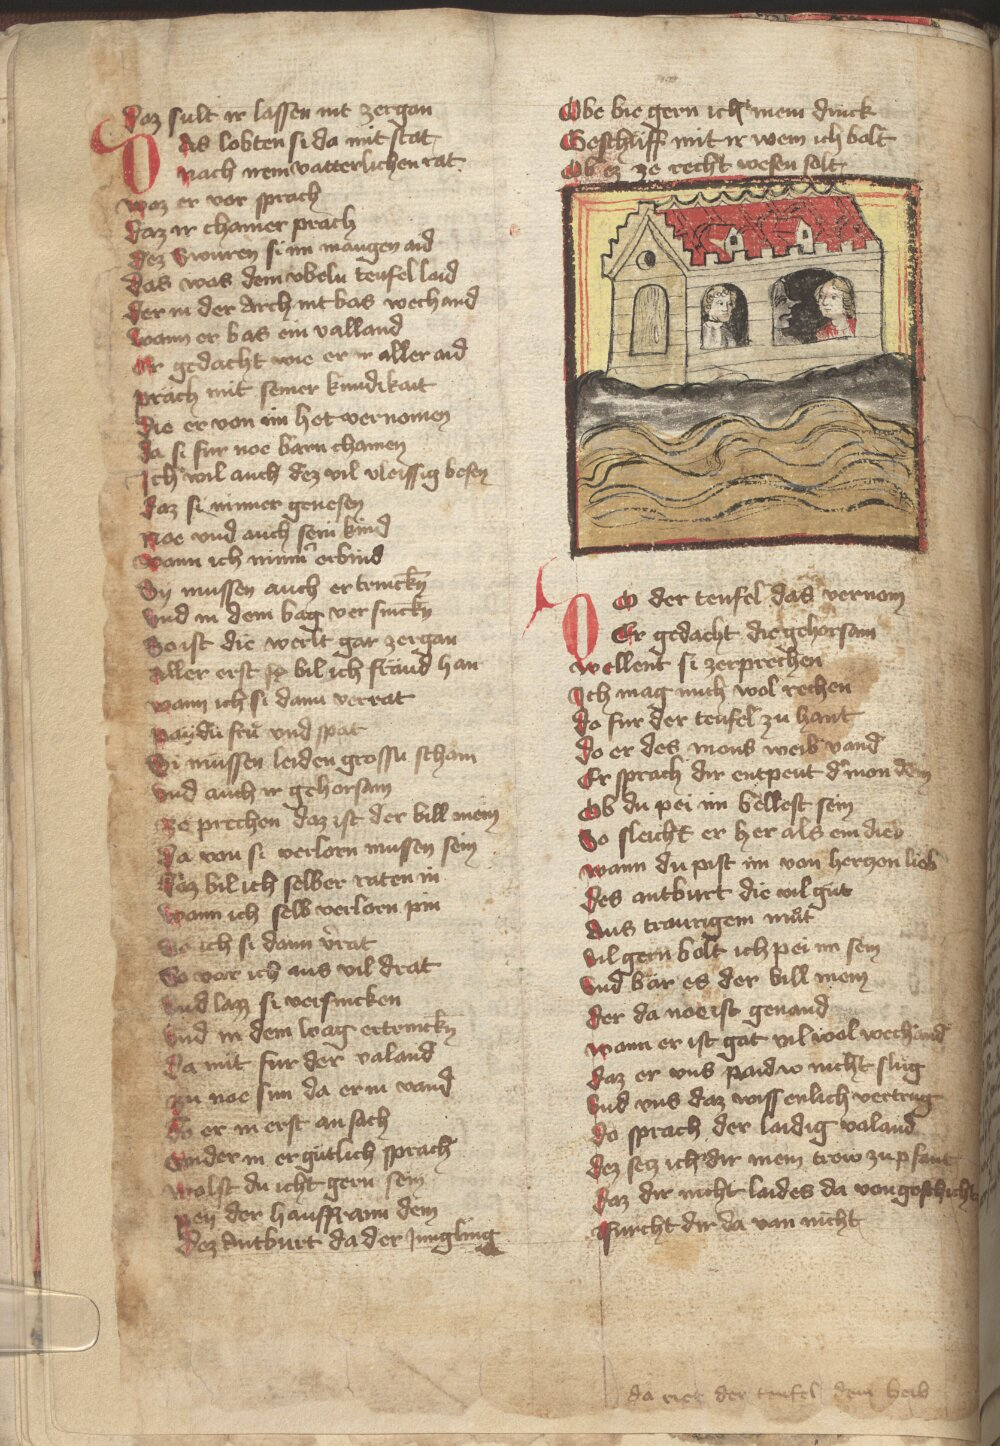 daz sult ir lassen nit zergan
Das lobten si da mit stat
nach irem vatterlichen rat
waz er vor sprach
daz ir chainer prach
dez swuren si im mangen aid
das was dem vbeln teufel laid
der in der Arch nit bas wechand
wann er bas ein valland
Er gedacht wie er ir aller aid
prach mit seiner kundikait
die er von im het vernomen
da si fur noe barn chamen
Ich wil auch dez vil vleissig besen
daz si nimer genesen
noe vnd auch sein kind
wann ich nimer erbind
Sy mussen auch ertrincken
vnd in dem bag versincken
So ist die werlt gar zergan
Aller erst so bil ich fraud han
wann ich si dann verrat
paydu fru vnd spat
Si mussen leiden grossu scham
vnd auch ir gehorsam
ze prechen daz ist der bill mein
da von si verlorn mussen sein
daz bil ich selber raten in
wann ich selb verlorn pin
So ich si dann verrat
So var ich aus vil drat
vnd lazz si versincken
vnd in dem wag ertrincken
Da mit fur der valand
zu noe sun da er in vand
do er in erst an sach
wider in er gutlich sprach
wolst du icht gern sein
pey der hausfrawn dein
dez Antburt da der Jungling
Obe bie gern ich mein druck
Geschliff mit ir wem ich bolt
Ob ez ze recht wesen solt
Do der teufel das vernom
Er gedacht die gehorsam
wellent si zerprechen
Ich mag mich wol rechen
do fur der teufel zu hant
do er des mons weib vand
Er sprach dir entpeut der mon dein
Ob du pei im bellest sein
So sleicht er her als ein dieb
wann du pist im von herczen lieb
des antburt die vil gut
Aus traurigem mut
vil gern bolt ich pei im sein
vnd bar es der bill mein
der da noe ist genand
wann er ist gat vil wol wechand
daz er vns paidw nicht slug
vnd vns daz wissenlich vertrug
do sprach der laidig valand
dez secz ich dir mein trew zu pfant
daz dir nicht laides da von geschicht
furcht dir da van nicht
da riet der teufel dem beib